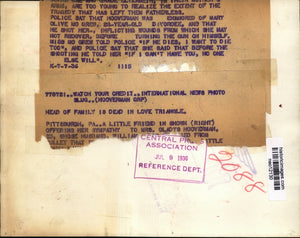 ARE, ARE TOO YOUNG TO REALIZE THE EXTENT OF THE
TRAGEDY THAT HAS LEFT THEM FATHERLESS.
POLICE SAY THAT HOOVERMAN HAS ENAMORED OF MARY
OLIVE NO GRED, 28-YEAR-OLD DIVORCEE, AND THAT
HE SHOT HER, INFLICTING WOUNDS FROM WHICH SHE MAY
NOT RECOVER, BEFORE TURNING THE GUN ON HIMSELF.
MISS NO GRED TOLD POLICE "IF HE DIES, I WANT TO DIE
TOO", AND POLICE SAY THAT SHE SAID THAT BEFORE THE
SHOOTING HE TOLD HER "IF I CAN'T HAVE YOU, NO ONE
ELSE WILL".
K-7-7-36 1115
WATCH YOUR CREDIT...INTERNATIONAL NEWS PHOTO
SLUG..(HOOVERMAN GRP)
HEAD OF FAMILY IS DEAD IN LOVE TRIANGLE.
PITTSBURGH, PA...A LITTLE FRIEND IS SHOWN (RIGHT)
OFFERING HER SYMPATHY TO MRS. GLADYS HOOVERMAN,
WHOSE HUSBAND, WILLIAM
THAT
CENTRAL PRESS
ASSOCIATION
JUL 9 1936
REFERENCE DEPT.
2088